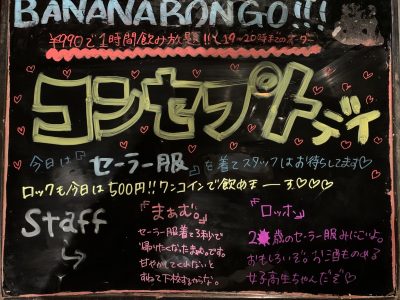 BANANABONGO!!!
¥990で1時間飲み放題!!(19~20時までのオーダー
コンセプトデイ
今日は『セーラー服』を着てスタッフはお待ちしてます♡
ロックも今日は500円!!ワンコインで飲めまーす♡♡♡
Staff
『まぁむ。』
セーラー服着て3秒で
帰りたくなったまぁむ。です。
甘やかしてくれないと
すねて下校するからな。
『ロッホ』
歳のセーラー服みにこいよ。
おもしろいぞ。お酒ものめる
女子高生ちゃんだぞ♡